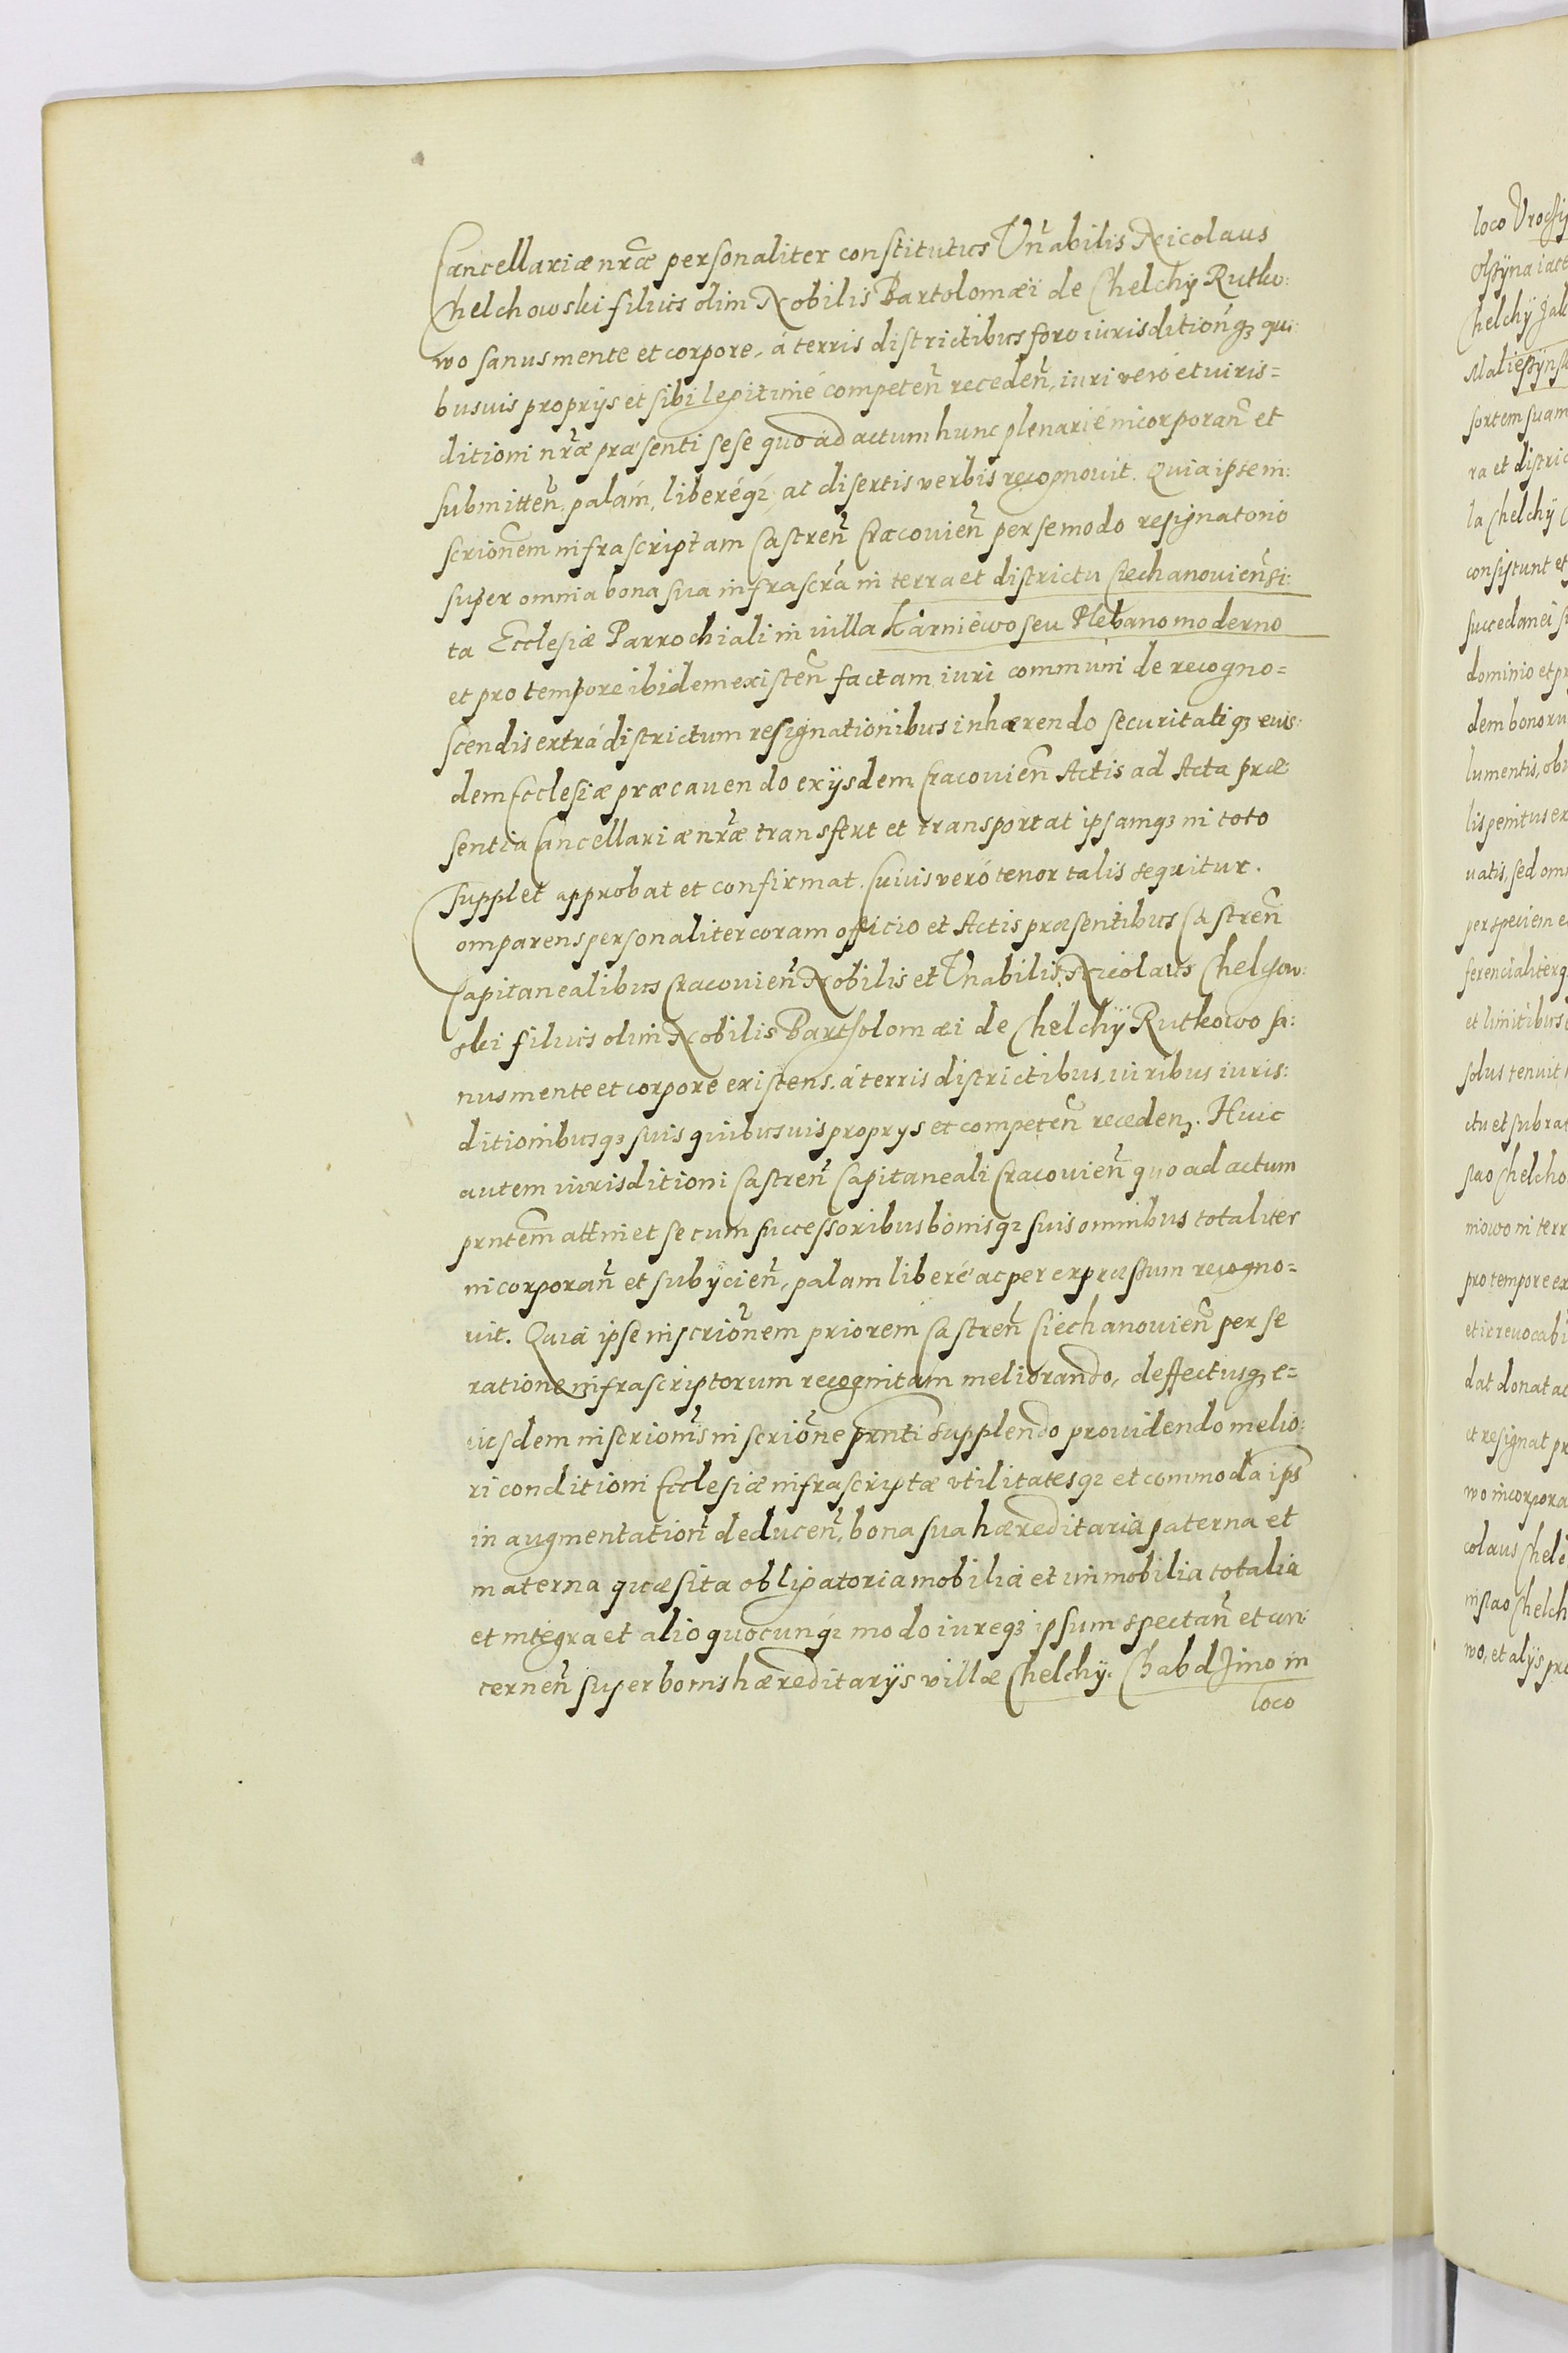 Cancellariæ nr̃æ personaliter constitutus Vñabilis Nicolaus
Chelchowski filius olim Nobilis Bartolomæi de Chelchÿ Rutko:
wo sanus mente et corpore, á terris districtibus foro iurisditionq́ȝ qui
busuis proprijs et sibi legitimé competeñ recedeñ, iuri veró et iuris=
ditioni nr̃æ præsenti sese quo ad actum hunc plenarié incorporañ et
submitteñ, palám, liberéqȝ, ac disertis verbis recognouit. Quia ipse in:
scrioñem infrascriptam Castreñ Cracouieñ per se modo resignatorio
super omnia bona sua infrascr̃a in terra et districtu Ciechanouieñ si:
ta Ecclesiæ Parrochiali in villa Karniewo seu Plebano moderno
et pro tempore ibidem existeñ factam iuri communi de recogno=
scendis extrá districtum resignationibus inhærendo securitatiqȝ eius:
dem Ecclesiæ præcauendo ex ijsdem Cracouieñ Actis ad Acta præ
sentia Cancellariæ nr̃æ transfert et transportat ipsamqȝ in toto
supplet approbat et confirmat. Cuius veró tenor talis sequitur.
Comparens personaliter coram officio et Actis præsentibus Castreñ
Capitanealibus Cracouieñ Nobilis et Vñabilis Nicolaus Chelchow:
ski filius olim Nobilis Bartholomæi de Chelchÿ Rutkowo sa:
nus mente et corpore existens. á terris districtibus, iuribus iuris:
ditionibusqȝ suis quibusuis proprys et competeñ receden̄. Huic
autem iurisditioni Castreñ Capitaneali Cracouieñ quo ad actum
prñtem attinet se cum successoribus bonisqȝ suis omnibus totaliter
incorporañ et subÿcieñ, palam liberé ac per expressum recogno=
uit. Quia ipse inscrioñem priorem Castreñ Ciechanouieñ per se
ratione infrascriptorum recognitam meliorando, deffectusqȝ e=
iusdem inscrioñis inscrioñe prñti supplendo prouidendo melio:
ri conditioni Ecclesiæ infrascriptæ vtilitatesqȝ et commoda ips̃
in augmentatioñ deduceñ, bona sua hæreditaria paterna et
materna quæsita obligatoria mobilia et immobilia totalia
et integra et alio quocunqȝ modo iureqȝ ipsum spectañ et con:
cerneñ super bonis hæreditarijs villæ Chelchÿ. Chabdzino in
loco